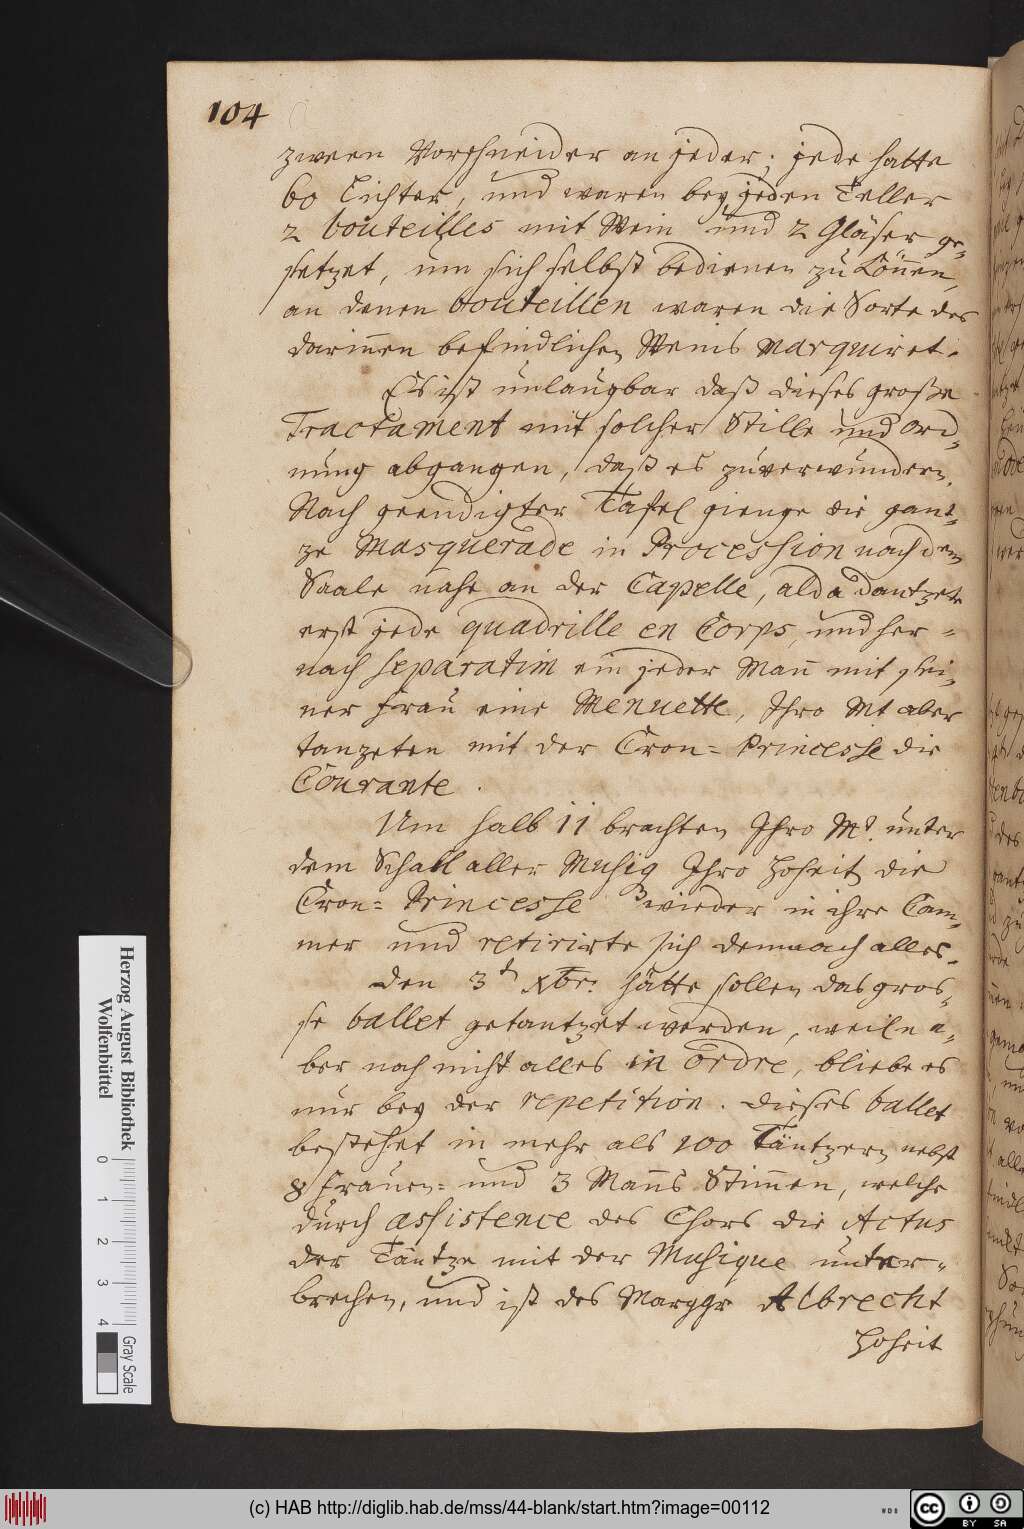 104
zween Vorschneider an jeder; jede hatte
60 Lichter, und waren bey jeden Teller
2 bouteilles mit Wein und 2 Gläser ge-
setzet, um sich selbst bedienen zu können,
an denen bouteillen waren die Sorte des
darinnen befindlichen Weins marquiret.
Es ist unlaugbar daß dieses große
Tractament mit solcher Stille und Ord-
nung abgangen, daß es zuverwundern.
Nach geendigter Tafel gienge die gant-
ze Masquerade in Procession nach dem
Saale nahe an der Capelle, alda dantzete
erst jede quadrille en Corps, und her-
nach separatim ein jeder Mann mit sei-
ner Frau eine Menuette, Ihro Mt aber
tanzeten mit der Cron-Princesse die
Courante.
Um halb 11 brachten Ihro Mt. unter
dem Schall aller Musiq Ihro Hoheit die
Cron-Princesse wieder in ihre Cam-
mer und retirirte sich demnach alles.
Den 3t Xbr. hätte sollen das gros-
se ballet getantzet werden, weiln a-
ber noch nicht alles in ordre, bliebe es
nur bey der repetition. Dieses ballet
bestehet in mehr als 100 Täntzern nebst
8 Frauen- und 3 Manns Stimmen, welche
durch assistence des Chors die Actus
der Täntze mit der Musique unter-
brechen, und ist des Marggr Albrecht
Hoheit
Herzog August Bibliothek
Wolfenbüttel
0 1 2 3 4
Gray Scale
(c) HAB http://diglib.hab.de/mss/44-blank/start.htm?image=00112
WDB
cc BY SA